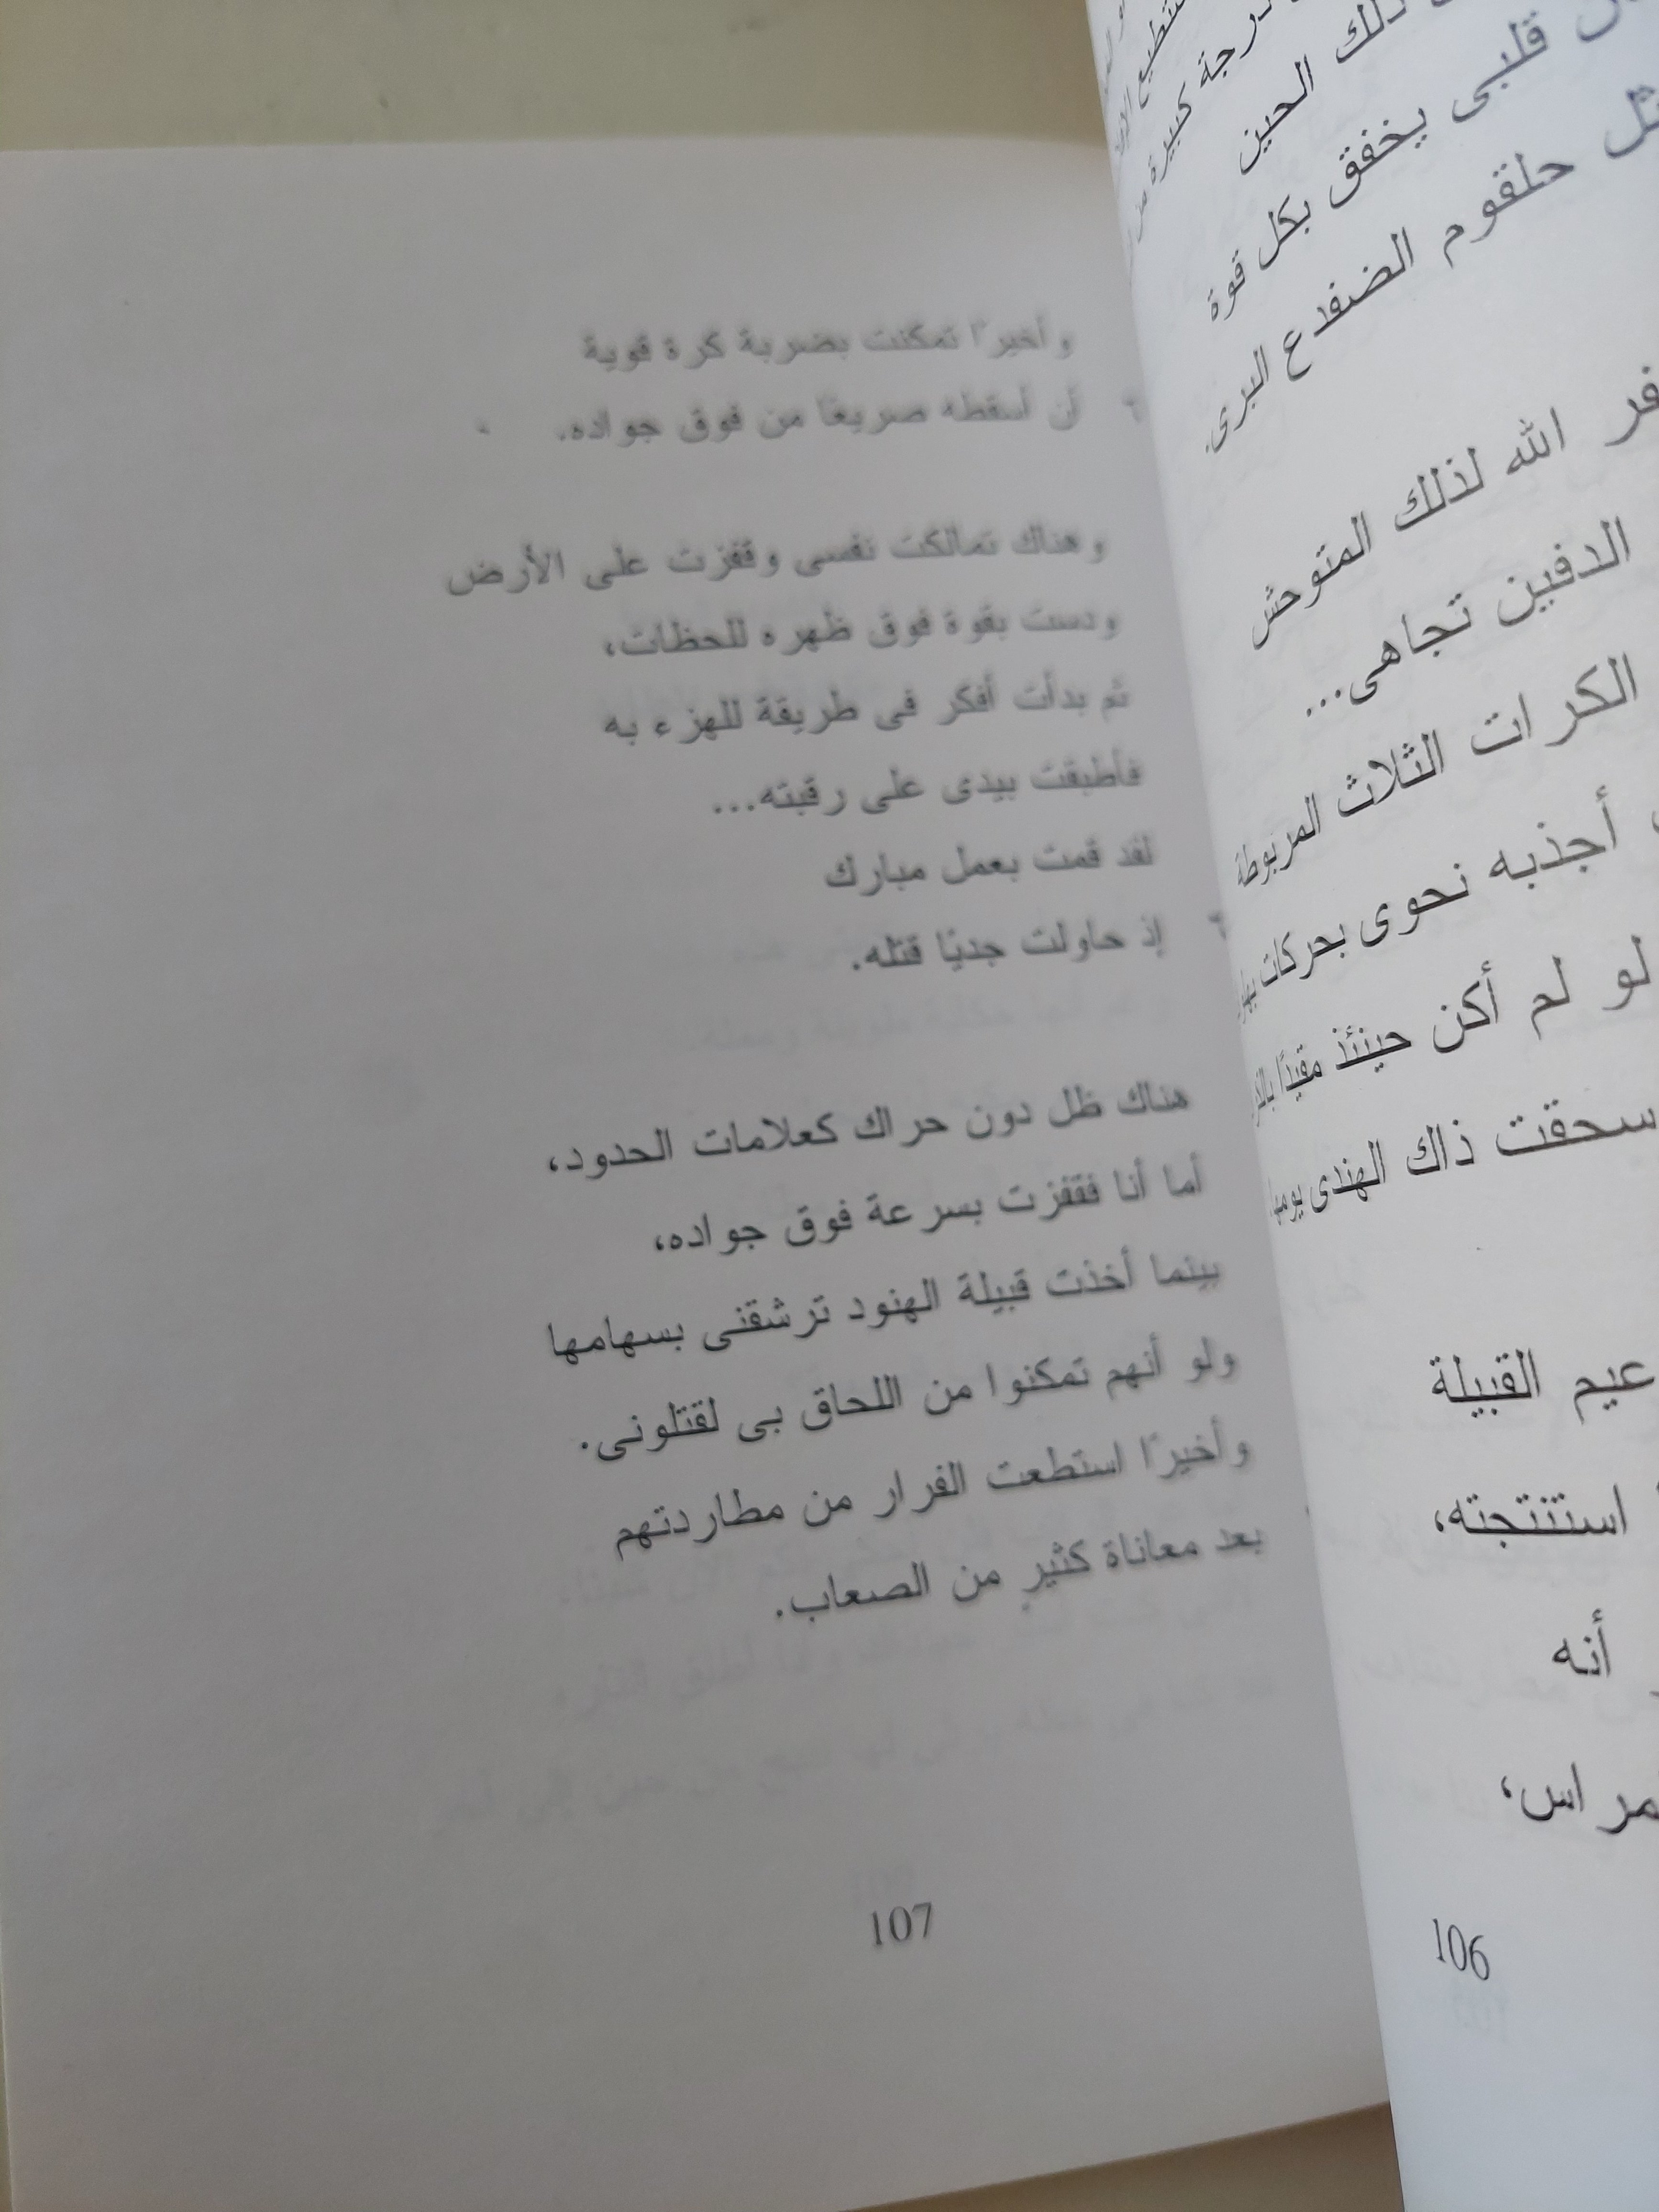 ذلك الحين
قلبى يخفق بكل قوة
حلقوم الضفدع البرى.
الله لذلك المتوحش
الدفين تجاهى...
الكرات الثلاث المربوطة
أجذبه نحوى بحركات
لو لم أكن حينئذ مقيدًا
سحقت ذاك الهندى يومها
القبيلة
استنتجته،
أنه
106
وأخيرًا تمكنت بضربة كرة قوية
أن أسقطه صريعًا من فوق جواده.
وهناك تمالكت نفسى وقفزت على الأرض
ودست بقوة فوق ظهره للحظات،
ثم بدأت أفكر فى طريقة للهزء به
فأطبقت بيدى على رقبته...
لقد قمت بعمل مبارك
إذ حاولت جديًا قتله.
هناك ظل دون حراك كعلامات الحدود،
أما أنا فقفزت بسرعة فوق جواده،
بينما أخذت قبيلة الهنود ترشقنى بسهامها
ولو أنهم تمكنوا من اللحاق بى لقتلونى.
وأخيرًا استطعت الفرار من مطاردتهم
بعد معاناة كثير من الصعاب.
107